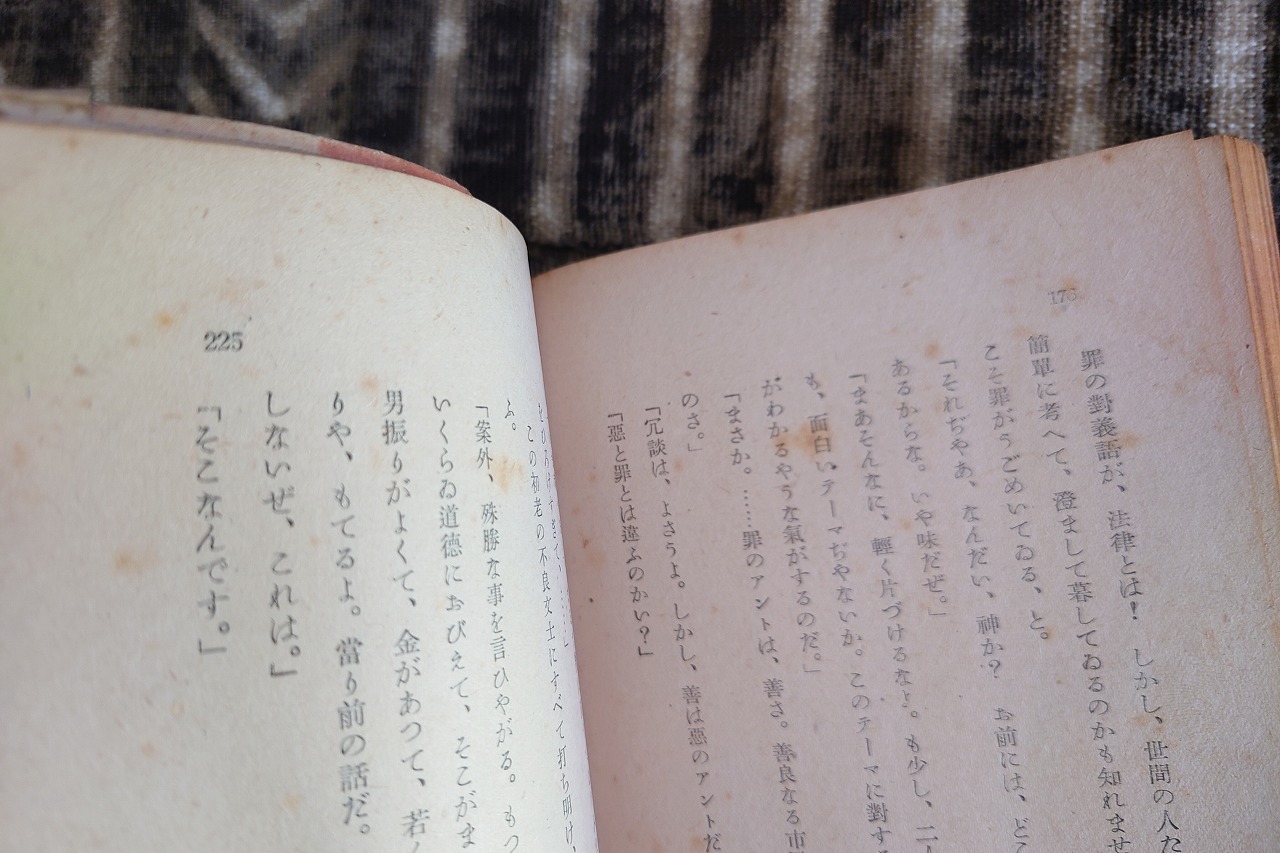 176
罪の對義語が、法律とは！　しかし、世間の人た
簡單に考へて、澄まして暮してゐるのかも知れませ
こそ罪がうごめいてゐる、と。
「それぢやあ、なんだい、神か？　お前には、どこ
あるからな。いや味だぜ。」
「まあそんなに、輕く片づけるなよ。も少し、二人
も、面白いテーマぢやないか。このテーマに對する
がわかるやうな氣がするのだ。」
「まさか。……罪のアントは、善さ。善良なる市
のさ。」
「冗談は、よさうよ。しかし、善は惡のアントだ
「惡と罪とは違ふのかい？」
この初老の不良文士にすべて打ち明け、
ふ。
「案外、殊勝な事を言ひやがる。もつ
いくらゐ道德におびえて、そこがま
男振りがよくて、金があつて、若
りや、もてるよ。當り前の話だ。
しないぜ、これは。」
「そこなんです。」
225